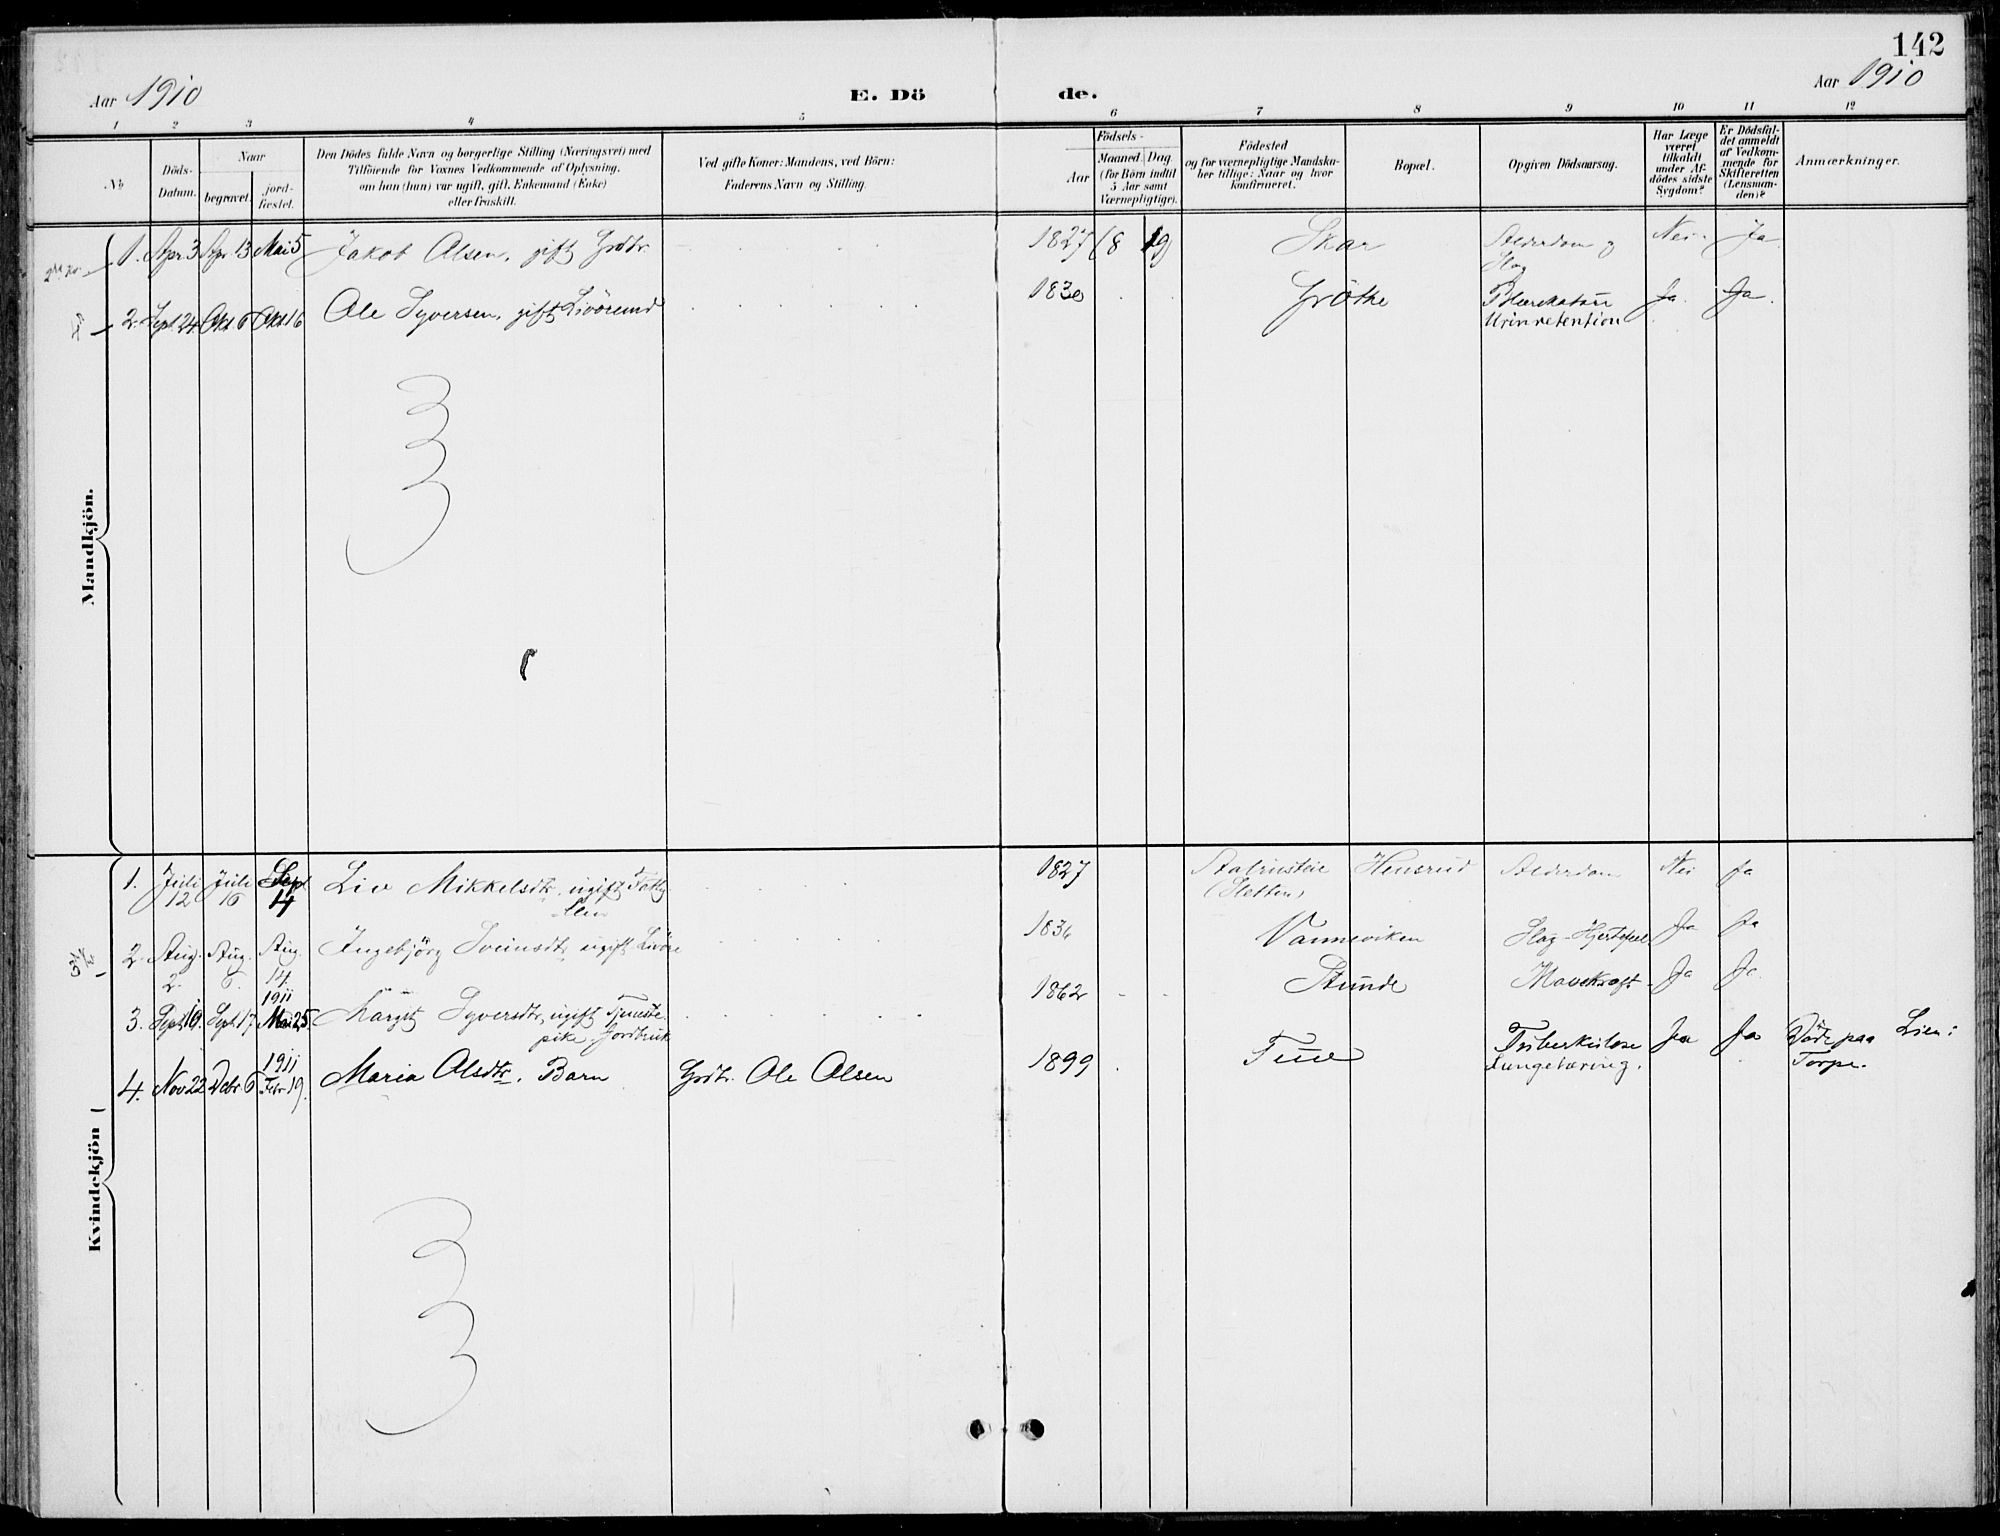 142
Aar 1910
E. Dö de.
Aar 1910
1 2 3 4 5 6 7 8 9 10 11 12
No
Döds-
Datum.
Naar
begravet.
jord-
fæstet.
Den Dödes fulde Navn og borgerlige Stilling (Næringsvei) med
Tilföiende for Voxnes Vedkommende af Oplysning,
om han (hun) var ugift, gift, Enkemand (Enke)
eller fraskilt.
Ved gifte Koner: Mandens, ved Börn:
Faderens Navn og Stilling.
Födsels-
Aar
Maaned. Dag.
(for Börn indtil
5 Aar samt
Værnepligtige).
Födested
og for værnepligtige Mandska-
ber tillige: Naar og hvor
konfirmeret.
Bopæl.
Opgiven Dödsaarsag.
Har Læge
været
tilkaldt
under Af-
dödes sidste
Sygdom?
Er Dödsfal-
det anmeldt
af Vedkom-
mende for
Skifteretten
(Lensman-
den)?
Anmærkninger.
Mandkjön.
1. Apr. 3 Apr. 13 Mai 5 Jakob Olsen, gift Grdbr. 1827 (8 19) Skar Alderdom og Nei Ja
Slag
2. Sept. 24 Okt 6 Okt 16 Ole Syversen, gift 1830 Gröthe Blærekatarr Ja Ja
Urinretention
Kvindekjön
1. Juli Juli Sept Liv Mikkelsdtr. ugift Fattig- 1827 Hensrud Alderdom Nei Ja
12 16 14 lem (Sletten)
2. Aug. Aug. Aug. Ingebjörg Sveinsdtr. ugift Livöre Vanneviken Slag - Hjertefeil Ja Ja
2. 6. 14.
1911
3. Sept. 10. Sept. 17 Mai 25 Margit Syversdtr, ugift Tjeneste- 1862 Stunde Mavekræft Ja Ja
pike Jordbruk
1911
4. Nov 22 Debr. 6 Febr. 19. Maria Olsdtr. Barn Grdbr. Ole Olsen 1899 Tuberkulose Ja Ja Döde paa Lien i
Lungetæring. Torpe.